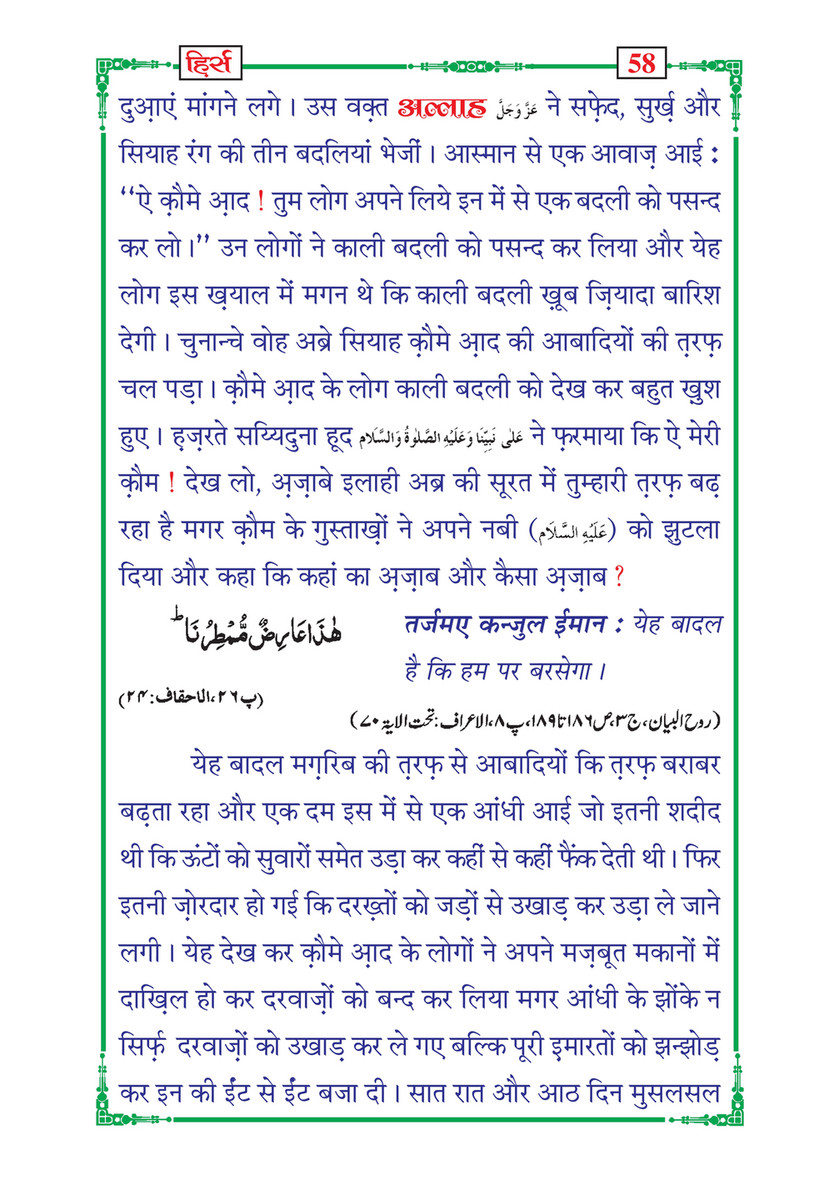 हिर्स
58
दुआ़एं मांगने लगे । उस वक़्त अल्लाह عَزَّ وَجَلَّ ने सफ़ेद, सुर्ख़ और
सियाह रंग की तीन बदलियां भेजीं । आस्मान से एक आवाज़ आई :
‘‘ऐ क़ौमे आ़द ! तुम लोग अपने लिये इन में से एक बदली को पसन्द
कर लो ।’’ उन लोगों ने काली बदली को पसन्द कर लिया और येह
लोग इस ख़याल में मगन थे कि काली बदली ख़ूब ज़ियादा बारिश
देगी । चुनान्चे वोह अब्रे सियाह क़ौमे आ़द की आबादियों की त़रफ़
चल पड़ा । क़ौमे आ़द के लोग काली बदली को देख कर बहुत ख़ुश
हुए । ह़ज़रते सय्यिदुना हूद عَلٰى نَبِيِّنَا وَعَلَيْهِ الصَّلٰوةُ وَالسَّلَام ने फ़रमाया कि ऐ मेरी
क़ौम ! देख लो, अ़ज़ाबे इलाही अब्र की सूरत में तुम्हारी त़रफ़ बढ़
रहा है मगर क़ौम के गुस्ताख़ों ने अपने नबी (عَلَيْهِ السَّلَام) को झुटला
दिया और कहा कि कहां का अ़ज़ाब और कैसा अ़ज़ाब ?
هٰذَا عَارِضٌ مُّمْطِرُنَا ؕ
(پ۲۶،الاحقاف:۲۴)
तर्जमए कन्ज़ुल ईमान : येह बादल
है कि हम पर बरसेगा ।
(روح البیان،ج۳،ص۱۸۶تا۱۸۹،پ۸،الاعراف:تحت الایۃ۷۰)
येह बादल मग़रिब की त़रफ़ से आबादियों कि त़रफ़ बराबर
बढ़ता रहा और एक दम इस में से एक आंधी आई जो इतनी शदीद
थी कि ऊंटों को सुवारों समेत उड़ा कर कहीं से कहीं फैंक देती थी । फिर
इतनी ज़ोरदार हो गई कि दरख़्तों को जड़ों से उखाड़ कर उड़ा ले जाने
लगी । येह देख कर क़ौमे आ़द के लोगों ने अपने मज़बूत मकानों में
दाख़िल हो कर दरवाज़ों को बन्द कर लिया मगर आंधी के झोंके न
सिर्फ़ दरवाज़ों को उखाड़ कर ले गए बल्कि पूरी इ़मारतों को झन्झोड़
कर इन की ईंट से ईंट बजा दी । सात रात और आठ दिन मुसलसल